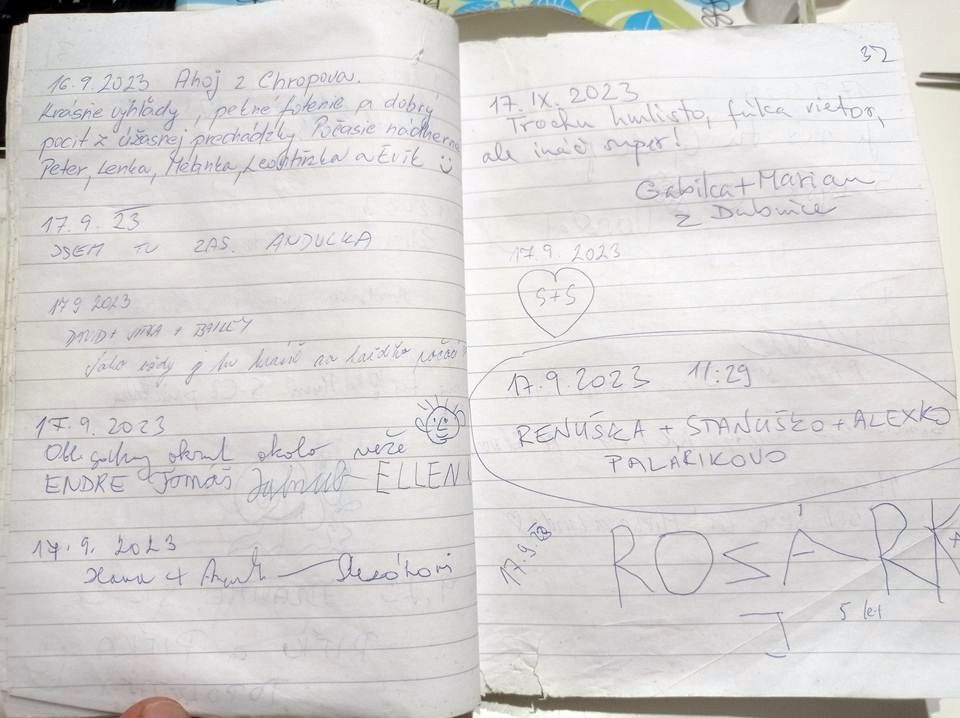 16.9.2023 Ahoj z Chropova.
Krásne výhľady, pekné fotenie a dobrý
pocit z úžasnej prechádzky. Počasie nádherné
Peter, Lenka, Melinka, a Evik
17.9. 23
JSEM TU ZAS. ANDULKA
17 9 2023
DAVID + + BAILEY
17.9.2023
okruh okolo veže
ENDRE Tomáš Jakub ELLEN
17.9. 2023
Hana +
32
17.IX.2023
Trochu hmlisto, fúka vietor,
ale ináč super!
Gabika + Marian
z Dubnice
17.9.2023
S+S
17.9.2023 11:29
RENUŠKA + STANUŠKO + ALEXKO
PALÁRIKOVO
17.9.23
ROSÁRK
5 let
J